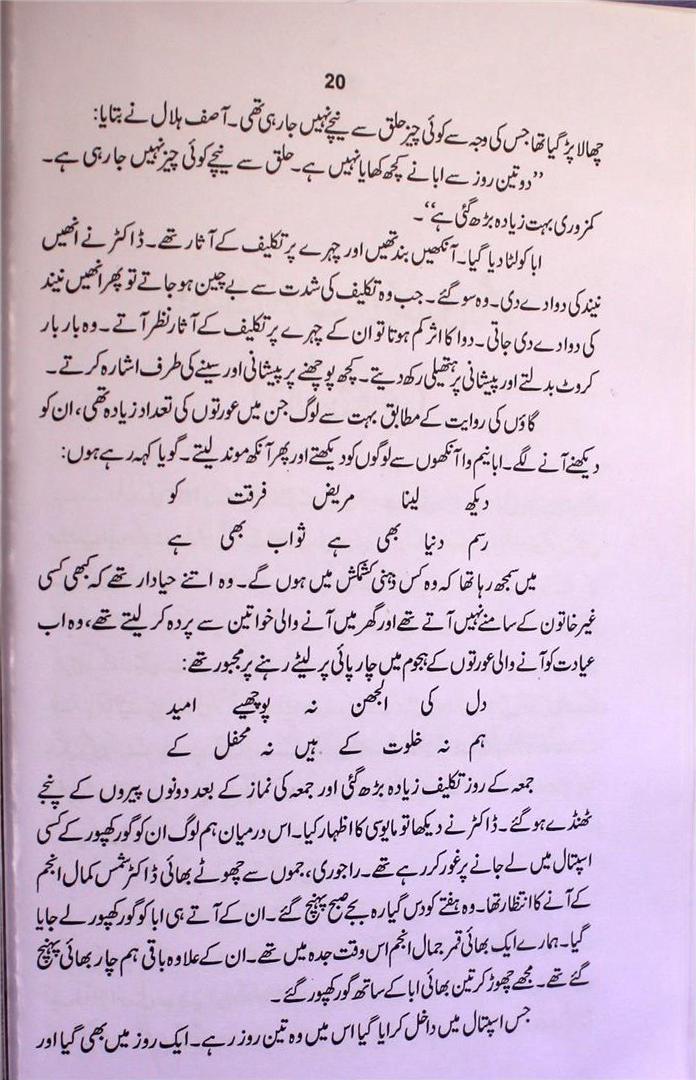 20
چھالا پڑ گیا تھا جس کی وجہ سے کوئی چیز حلق سے نیچے نہیں جا رہی تھی۔ آصف ہلال نے بتایا:
”دو تین روز سے ابا نے کچھ کھایا نہیں ہے۔ حلق سے نیچے کوئی چیز نہیں جا رہی ہے۔
کمزوری بہت زیادہ بڑھ گئی ہے“۔
ابا کو لٹا دیا گیا۔ آنکھیں بند تھیں اور چہرے پر تکلیف کے آثار تھے۔ ڈاکٹر نے انھیں
نیند کی دوا دے دی۔ وہ سو گئے۔ جب وہ تکلیف کی شدت سے بے چین ہو جاتے تو پھر انھیں نیند
کی دوا دے دی جاتی۔ دوا کا اثر کم ہوتا تو ان کے چہرے پر تکلیف کے آثار نظر آتے۔ وہ بار بار
کروٹ بدلتے اور پیشانی پر ہتھیلی رکھ دیتے۔ کچھ پوچھنے پر پیشانی اور سینے کی طرف اشارہ کرتے۔
گاؤں کی روایت کے مطابق بہت سے لوگ جن میں عورتوں کی تعداد زیادہ تھی، ان کو
دیکھنے آنے لگے۔ ابا نیم وا آنکھوں سے لوگوں کو دیکھتے اور پھر آنکھ موند لیتے۔ گویا کہہ رہے ہوں:
دیکھ لینا مریض فرقت کو
رسم دنیا بھی ہے ثواب بھی ہے
میں سمجھ رہا تھا کہ وہ کس ذہنی کشمکش میں ہوں گے۔ وہ اتنے حیادار تھے کہ کبھی کسی
غیر خاتون کے سامنے نہیں آتے تھے اور گھر میں آنے والی خواتین سے پردہ کر لیتے تھے، وہ اب
عیادت کو آنے والی عورتوں کے ہجوم میں چارپائی پر لیٹے رہنے پر مجبور تھے:
دل کی الجھن نہ پوچھیے امید
ہم نہ خلوت کے ہیں نہ محفل کے
جمعہ کے روز تکلیف زیادہ بڑھ گئی اور جمعہ کی نماز کے بعد دونوں پیروں کے پنجے
ٹھنڈے ہو گئے۔ ڈاکٹر نے دیکھا تو مایوسی کا اظہار کیا۔ اس درمیان ہم لوگ ان کو گورکھپور کے کسی
اسپتال میں لے جانے پر غور کر رہے تھے۔ راجوری، جموں سے چھوٹے بھائی ڈاکٹر شمس کمال انجم
کے آنے کا انتظار تھا۔ وہ ہفتے کو دس گیارہ بجے صبح پہنچ گئے۔ ان کے آتے ہی ابا کو گورکھپور لے جایا
گیا۔ ہمارے ایک بھائی قمر جمال انجم اس وقت جدہ میں تھے۔ ان کے علاوہ باقی ہم چار بھائی پہنچ
گئے تھے۔ مجھے چھوڑ کر تین بھائی ابا کے ساتھ گورکھپور گئے۔
جس اسپتال میں داخل کرایا گیا اس میں وہ تین روز رہے۔ ایک روز میں بھی گیا اور